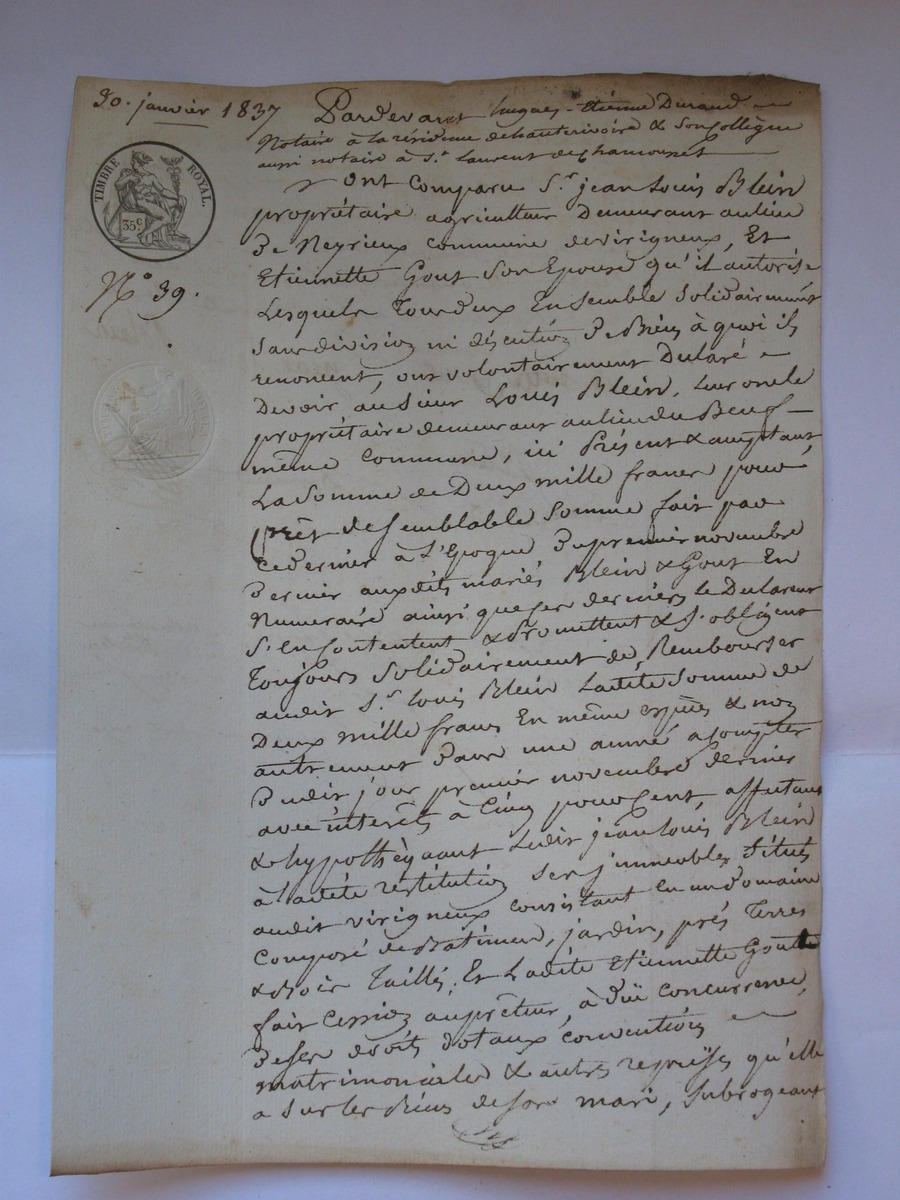 30. janvier 1837
Pardevant hugues-Etienne Durand
Notaire à la résidence de hauterivoire & Son Collègue
aussi notaire à St. Laurent de Chamousset
TIMBRE ROYAL.
35c
N° 39.
Ont Comparu Sr. jean Louis Blein
propriétaire agriculteur Demeurant au lieu
De Neyrieux commune de virigneux, Et
Etiennette Gout Son Epouse qu'il autorise
Lesquels Tous deux Ensemble Solidairement
Sans division ni discution De Biens à quoi ils
renoncent, ont volontairement Déclaré
Devoir au Sieur Louis Blein, leur oncle
propriétaire demeurant au lieu du Beuf
même commune, ici Présent & acceptant
La Somme de Deux mille francs pour
Prêt de Semblable Somme fait par
ce dernier à L'Epoque Du premier novembre
Dernier auxdits mariés Blein & Gout En
Numéraire ainsi que ces derniers le Declarent
S'en Contentent & Promettent & S'obligent
Toujours Solidairement de Rembourser
audit Sr. Louis Blein Ladite Somme de
Deux mille francs En même espèces & non
autrement Dans une année a compter
Dudit jour premier novembre dernier
avec intérêts à Cinq pour Cent, affectant
& hypothèquant Ledit jean Louis Blein
à Ladite restitution Ses jmmeubles Situés
audit virigneux consistant En un domaine
Composé de Batimens, jardin, prés Terres
& Bois Taillés. Et Ladite Etiennette Goutte
fait Cession au prêteur, à dûë concurrence,
De ses droits dotaux conventions
matrimoniales & autres reprises qu'elle
a Sur les Biens de Son mari, Subrogeant